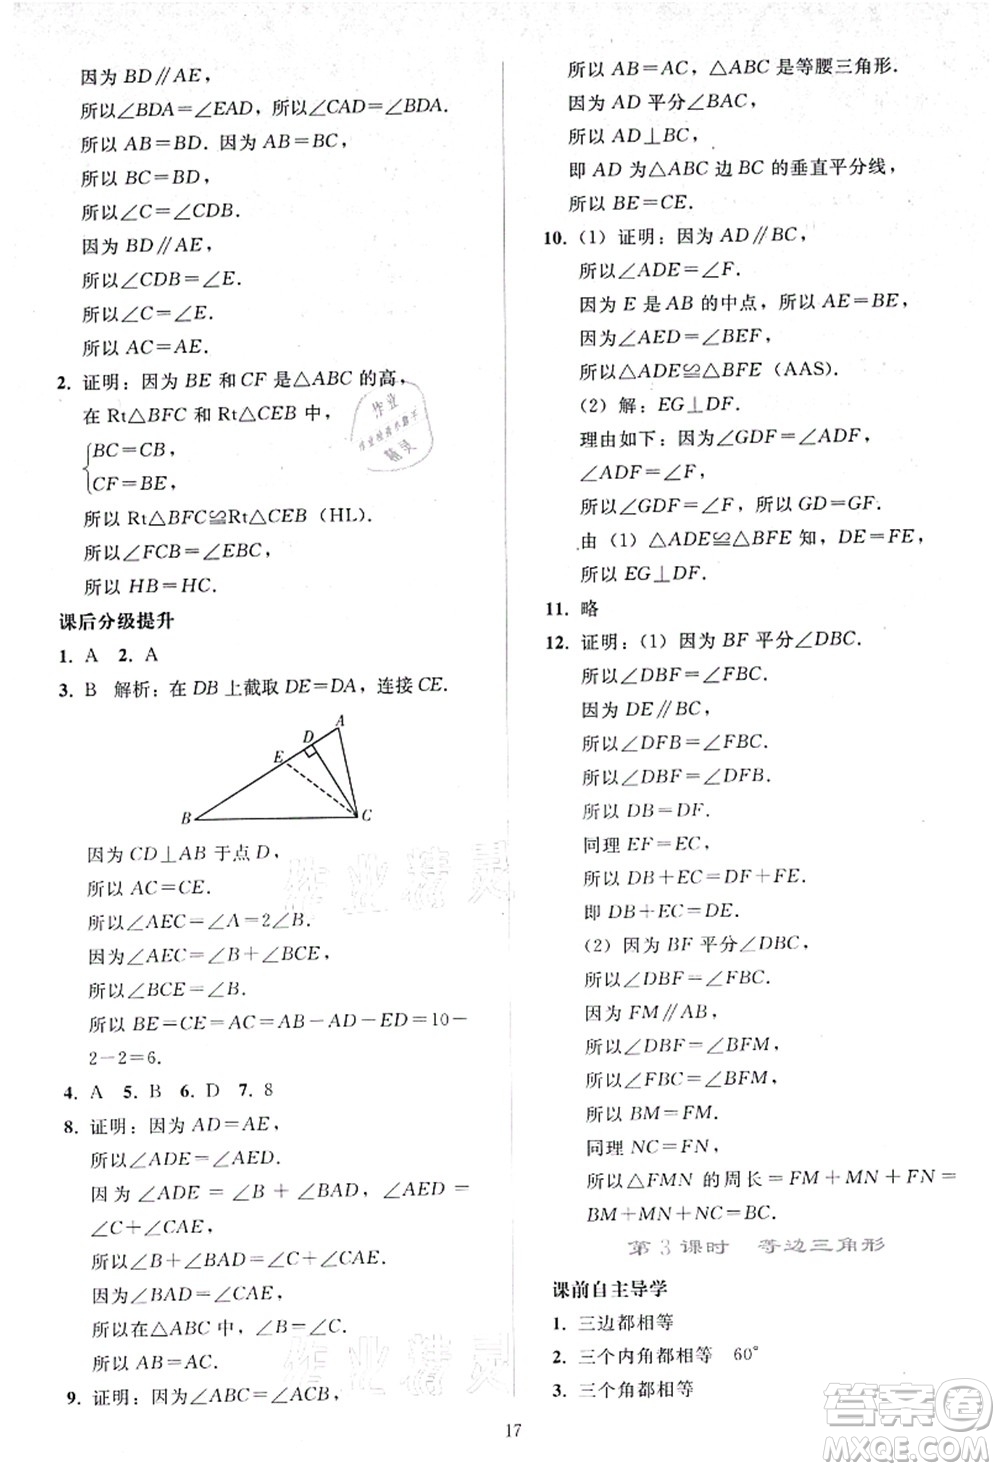 因为 BD∥AE,
所以∠BDA=∠EAD, 所以∠CAD=∠BDA.
所以 AB=BD. 因为 AB=BC,
所以 BC=BD,
所以∠C=∠CDB.
因为 BD∥AE,
所以∠CDB=∠E.
所以∠C=∠E.
所以 AC=AE.
2. 证明:因为 BE 和 CF 是△ABC 的高,
在 Rt△BFC 和 Rt△CEB 中,
BC=CB,
CF=BE,
所以 Rt△BFC≌Rt△CEB (HL).
所以∠FCB=∠EBC,
所以 HB=HC.
课后分级提升
1. A 2. A
3. B 解析:在 DB 上截取 DE=DA,连接 CE.
A
D
E
B
C
因为 CD⊥AB 于点 D,
所以 AC=CE.
所以∠AEC=∠A=2∠B.
因为∠AEC=∠B+∠BCE,
所以∠BCE=∠B.
所以 BE=CE=AC=AB-AD-ED=10-
2-2=6.
4. A 5. B 6. D 7. 8
8. 证明:因为 AD=AE,
所以∠ADE=∠AED.
因为 ∠ADE = ∠B + ∠BAD, ∠AED =
∠C+∠CAE,
所以∠B+∠BAD=∠C+∠CAE.
因为∠BAD=∠CAE,
所以在△ABC 中,∠B=∠C.
所以 AB=AC.
9. 证明:因为∠ABC=∠ACB,
所以 AB=AC, △ABC 是等腰三角形.
因为 AD 平分∠BAC,
所以 AD⊥BC,
即 AD 为△ABC 边 BC 的垂直平分线,
所以 BE=CE.
10. (1) 证明:因为 AD∥BC,
所以∠ADE=∠F.
因为 E 是 AB 的中点,所以 AE=BE,
因为∠AED=∠BEF,
所以△ADE≌△BFE (AAS).
(2) 解:EG⊥DF.
理由如下:因为∠GDF=∠ADF,
∠ADF=∠F,
所以∠GDF=∠F, 所以 GD=GF.
由 (1) △ADE≌△BFE 知, DE=FE,
所以 EG⊥DF.
11. 略
12. 证明:(1) 因为 BF 平分∠DBC.
所以∠DBF=∠FBC.
因为 DE∥BC,
所以∠DFB=∠FBC.
所以∠DBF=∠DFB.
所以 DB=DF.
同理 EF=EC.
所以 DB+EC=DF+FE.
即 DB+EC=DE.
(2) 因为 BF 平分∠DBC,
所以∠DBF=∠FBC.
因为 FM∥AB,
所以∠DBF=∠BFM.
所以∠FBC=∠BFM.
所以 BM=FM.
同理 NC=FN,
所以△FMN 的周长=FM+MN+FN=
BM+MN+NC=BC.
第 3 课时 等边三角形
课前自主导学
1. 三边都相等
2. 三个内角都相等 60°
3. 三个角都相等
17
作业精灵
作业精灵
答案圈
MXQE.COM